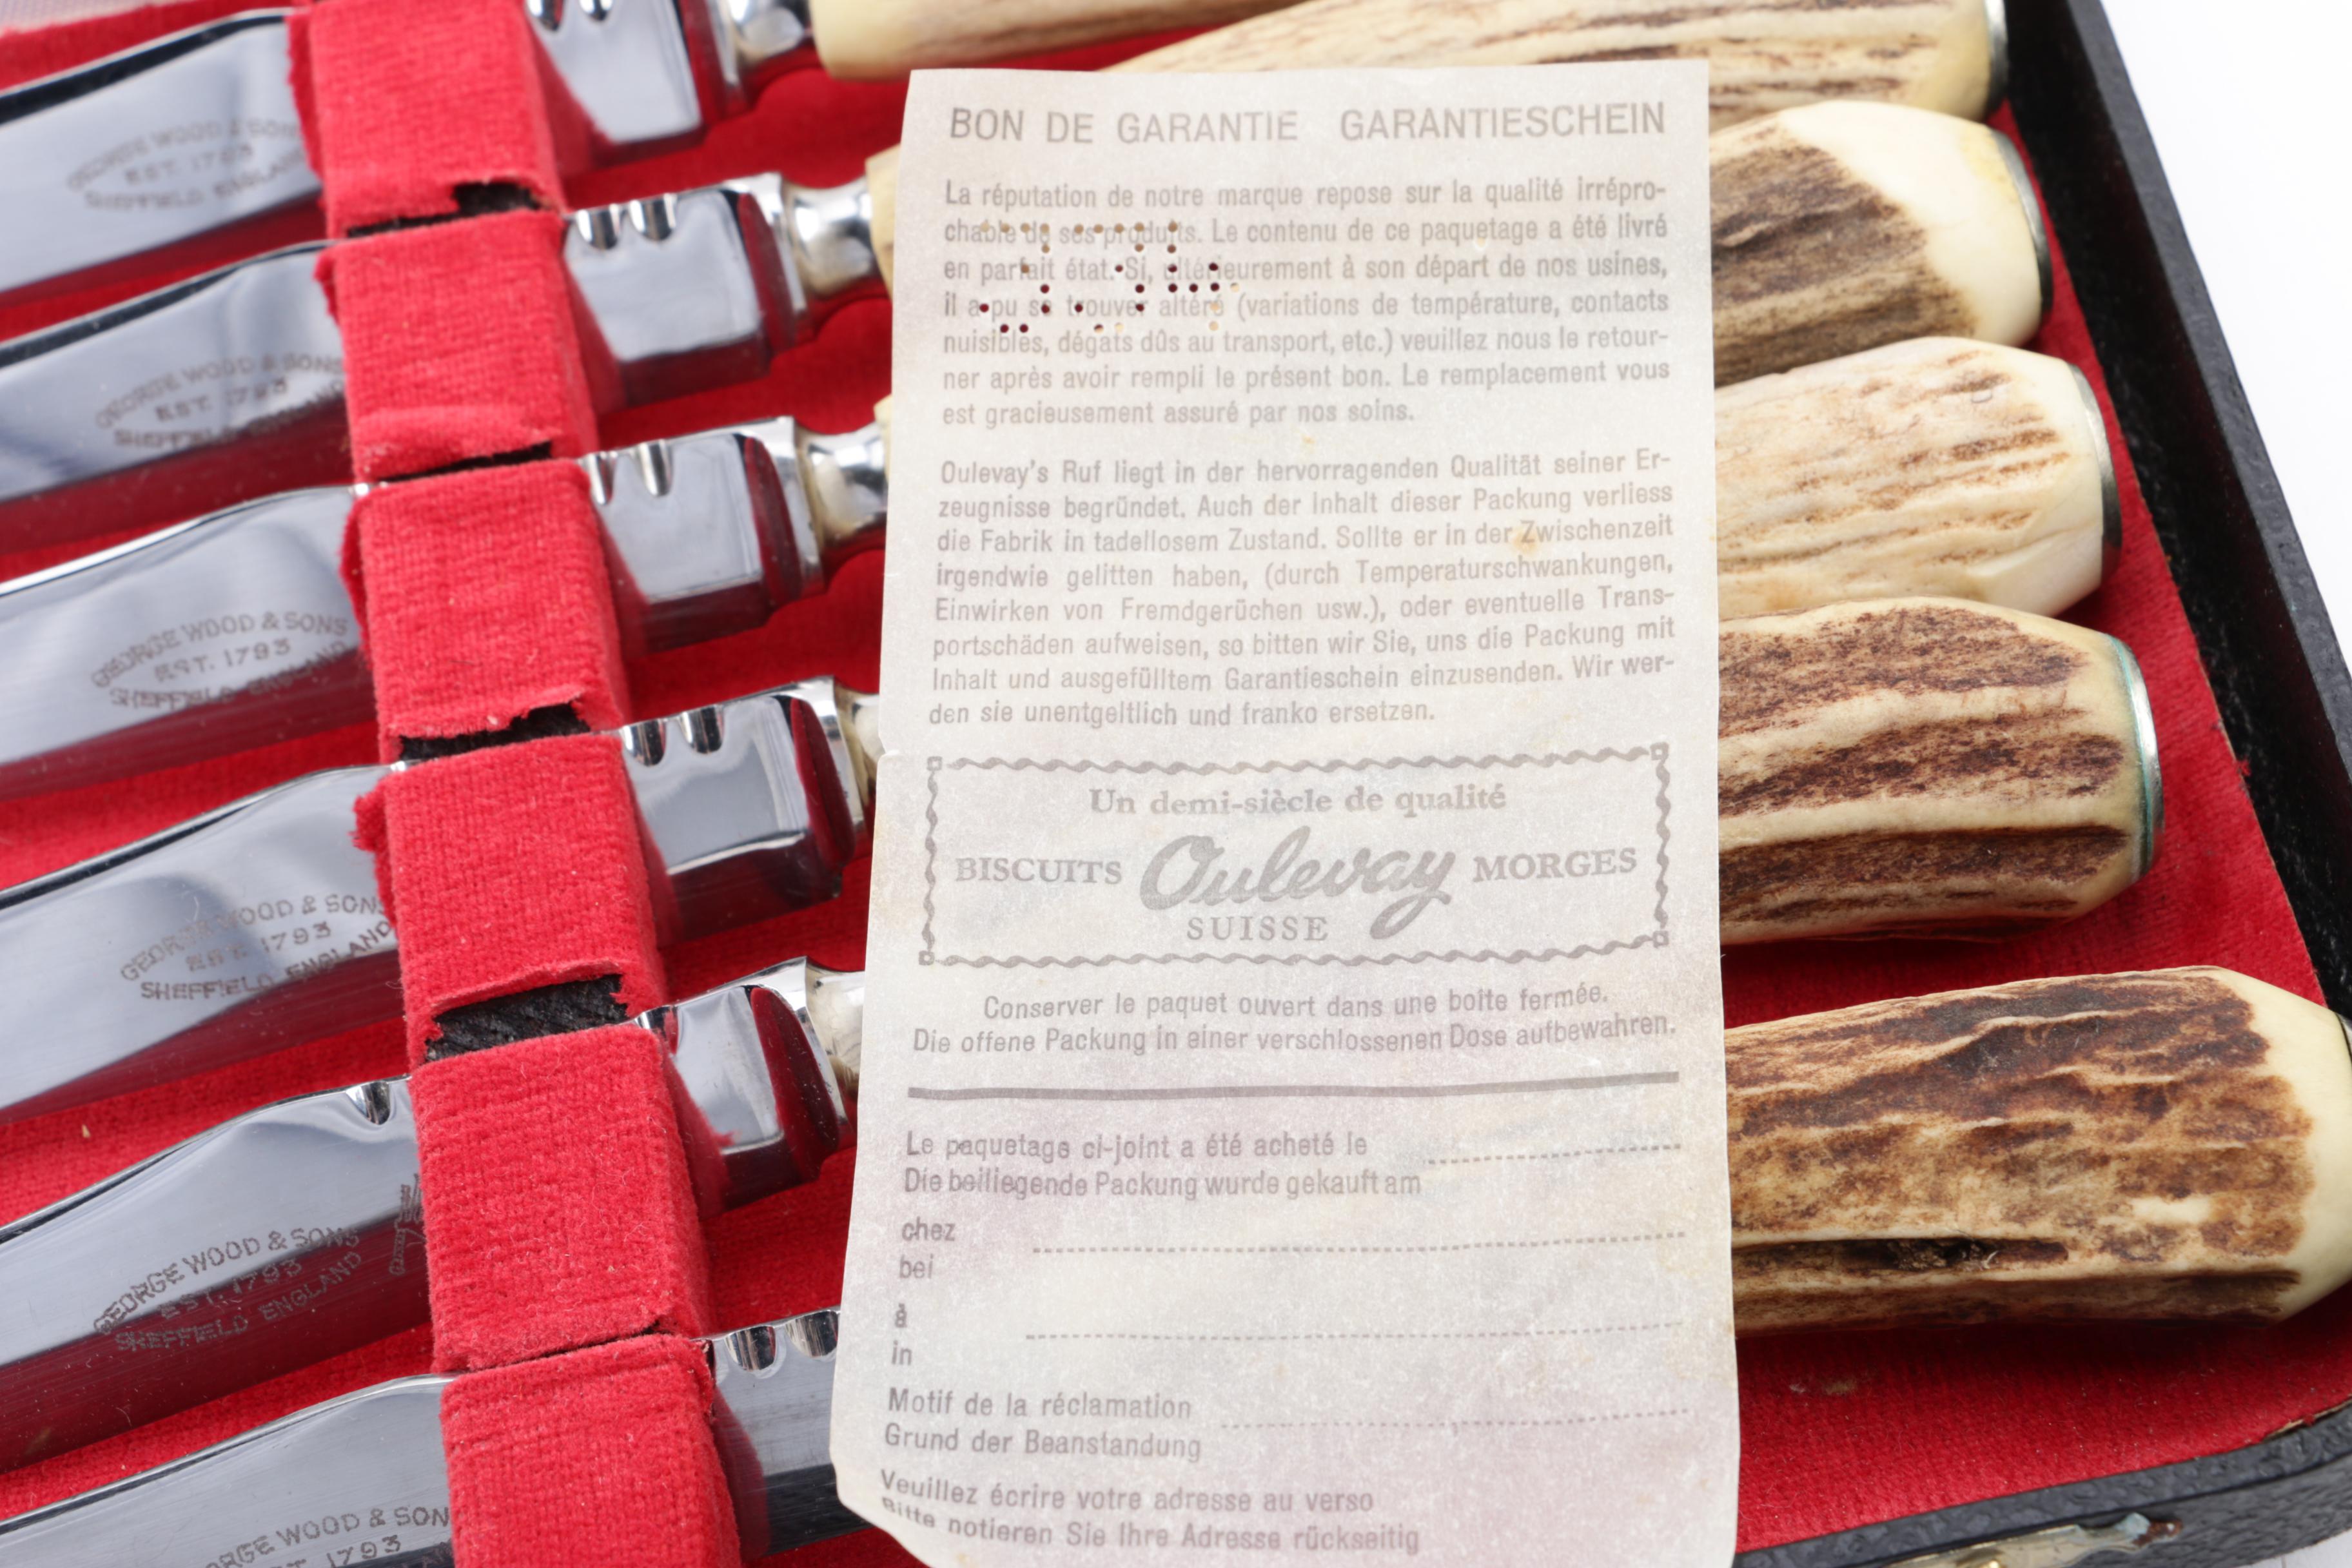 GEORGE WOOD & SONS
EST. 1793
SHEFFIELD ENGLAND
GEORGE WOOD & SONS
EST. 1793
SHEFFIELD ENGLAND
GEORGE WOOD & SONS
EST. 1793
SHEFFIELD ENGLAND
GEORGE WOOD & SONS
EST. 1793
SHEFFIELD ENGLAND
GEORGE WOOD & SONS
EST. 1793
SHEFFIELD ENGLAND
GEORGE WOOD & SON
EST. 1793
BON DE GARANTIE GARANTIESCHEIN
La réputation de notre marque repose sur la qualité irrépro-
chable de ses produits. Le contenu de ce paquetage a été livré
en parfait état. Si, ultérieurement à son départ de nos usines,
il a pu se trouver altéré (variations de température, contacts
nuisibles, dégats dûs au transport, etc.) veuillez nous le retour-
ner après avoir rempli le présent bon. Le remplacement vous
est gracieusement assuré par nos soins.
Oulevay's Ruf liegt in der hervorragenden Qualität seiner Er-
zeugnisse begründet. Auch der Inhalt dieser Packung verliess
die Fabrik in tadellosem Zustand. Sollte er in der Zwischenzeit
irgendwie gelitten haben, (durch Temperaturschwankungen,
Einwirken von Fremdgerüchen usw.), oder eventuelle Trans-
portschäden aufweisen, so bitten wir Sie, uns die Packung mit
Inhalt und ausgefülltem Garantieschein einzusenden. Wir wer-
den sie unentgeltlich und franko ersetzen.
Un demi-siècle de qualité
BISCUITS Oulevay MORGES
SUISSE
Conserver le paquet ouvert dans une boite fermée.
Die offene Packung in einer verschlossenen Dose aufbewahren.
Le paquetage ci-joint a été acheté le
Die beiliegende Packung wurde gekauft am
chez
bei
à
in
Motif de la réclamation
Grund der Beanstandung
Veuillez écrire votre adresse au verso
Bitte notieren Sie Ihre Adresse rückseitig